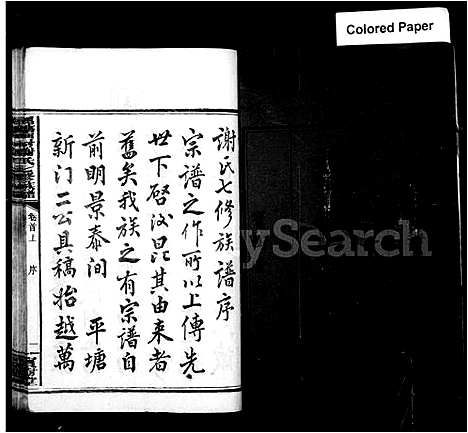 Colored Paper
謝氏七修族譜序
宗譜之作所以上傳先
世下啓後昆其由来者
舊矣我族之有宗譜自
前明景泰間 平塘
新门二公具稿抬越萬
卷首上 序 二
MySearch